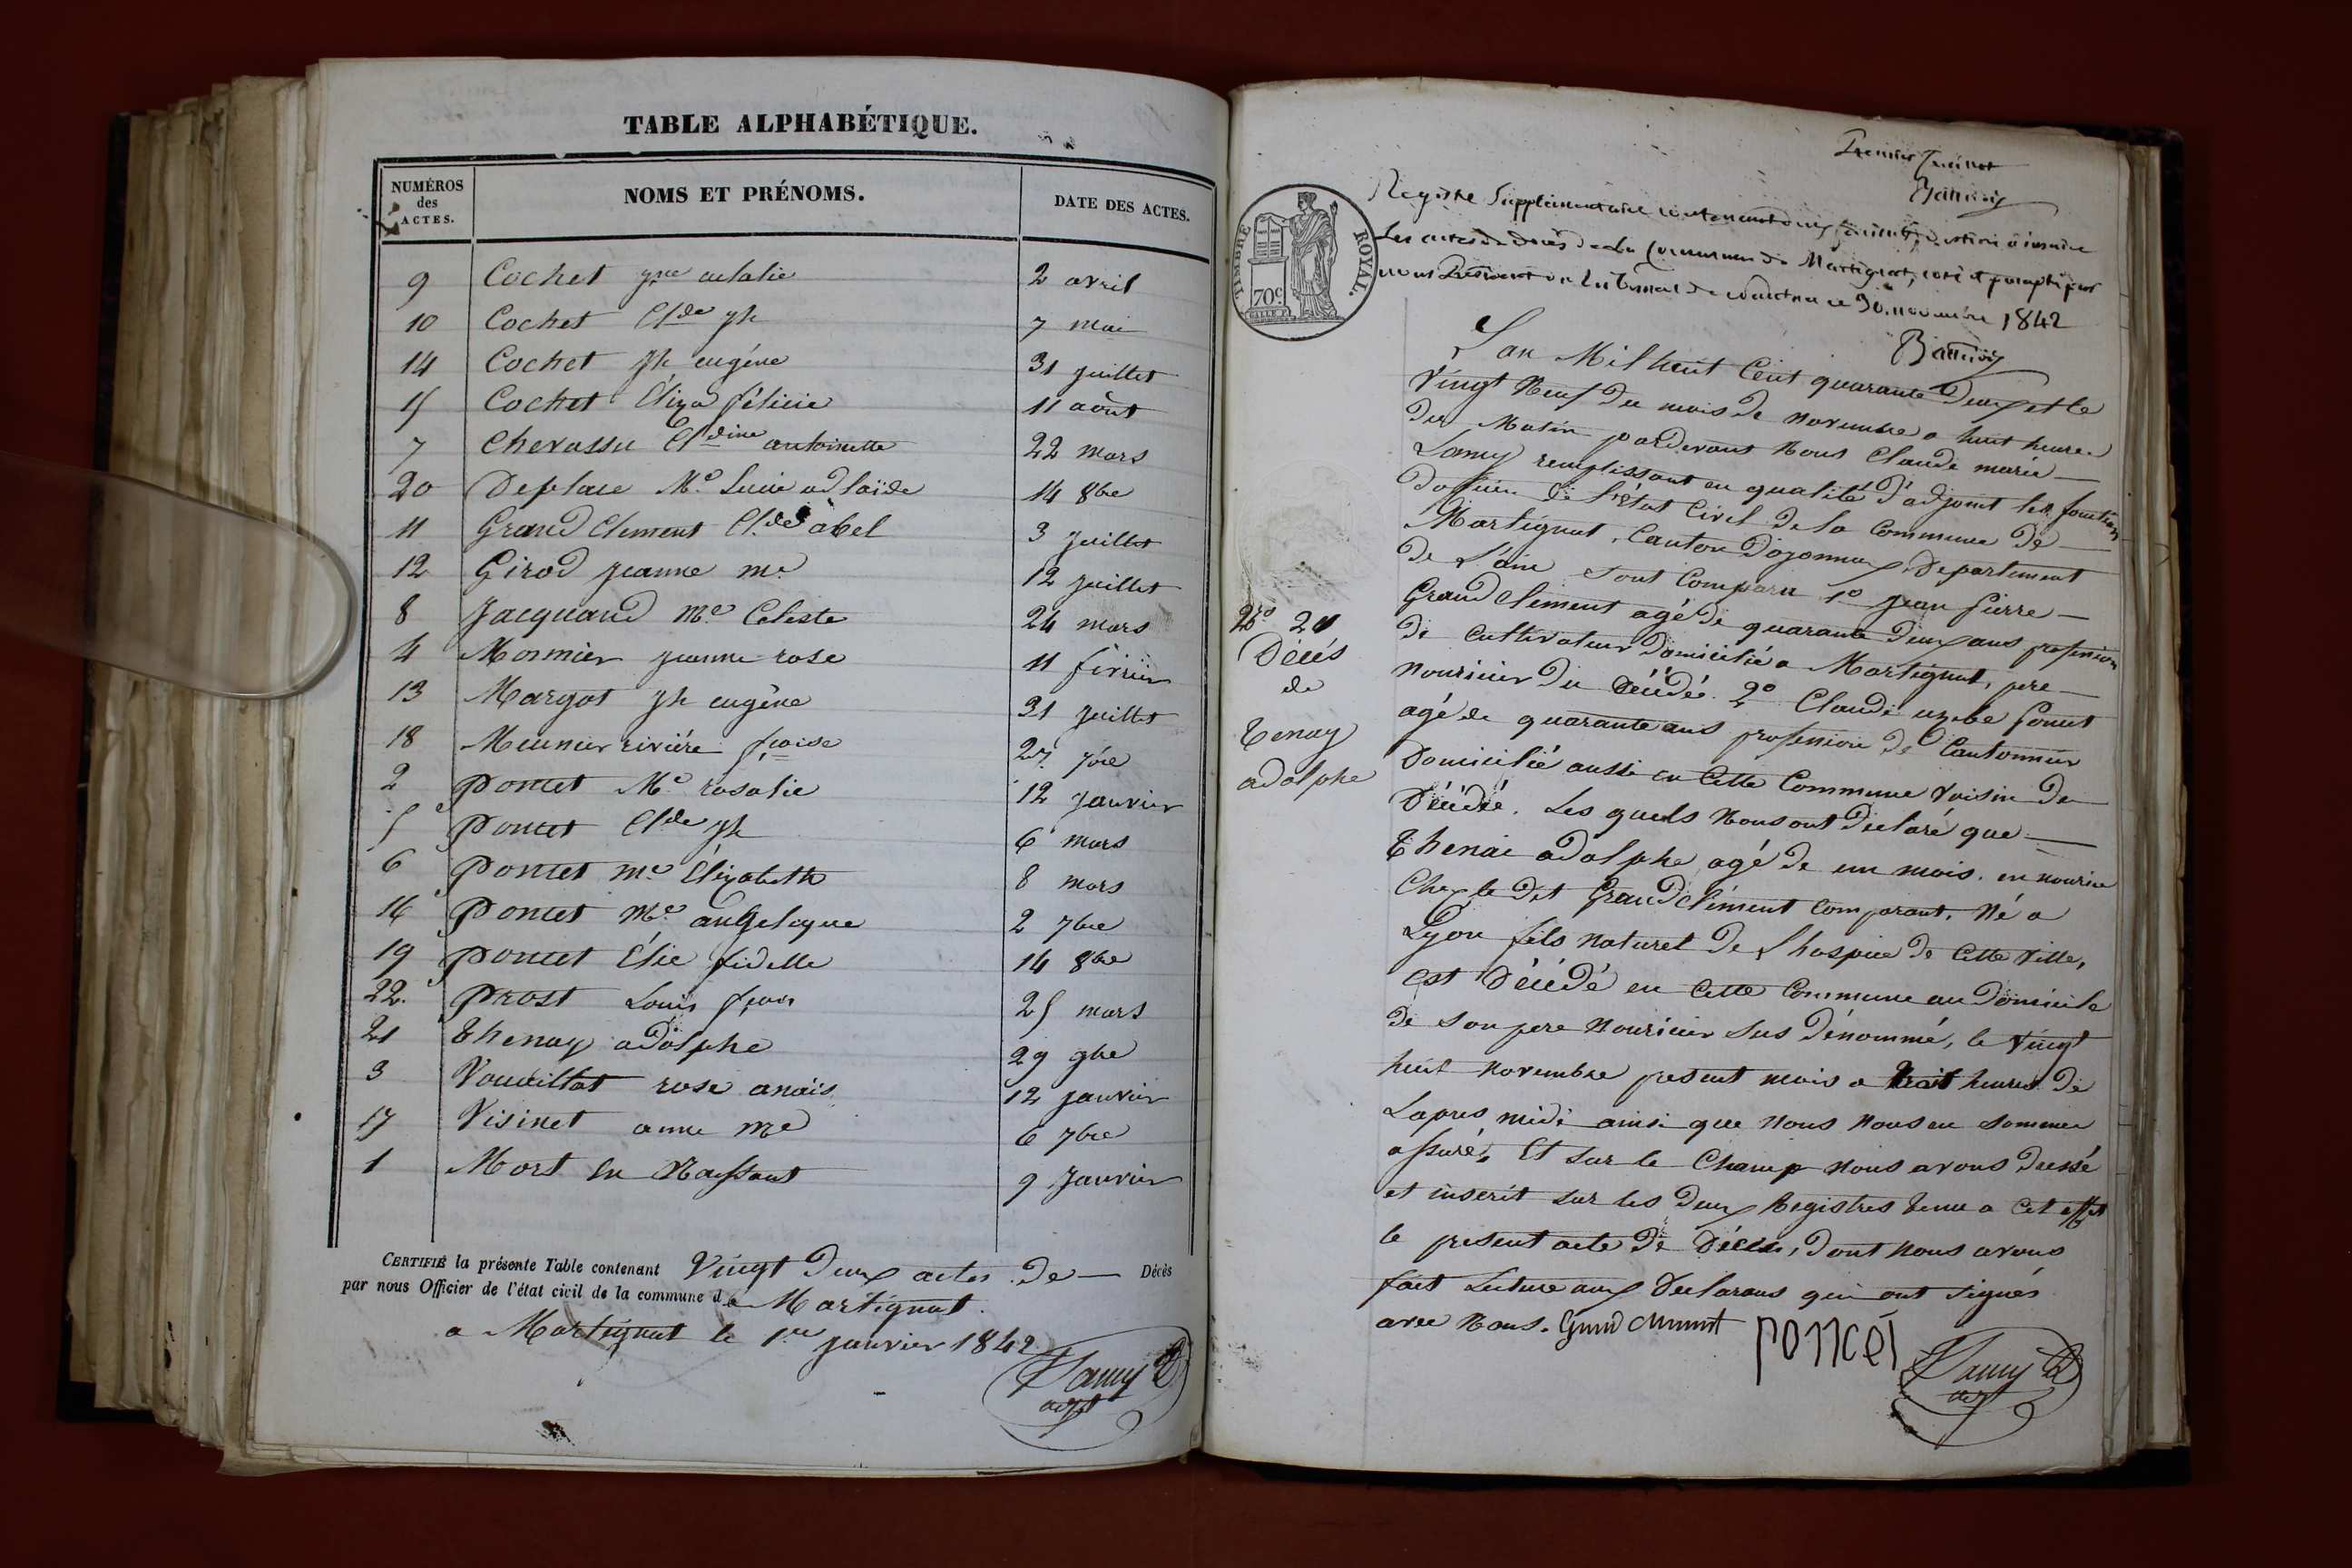 TABLE ALPHABÉTIQUE.
NUMÉROS des ACTES. NOMS ET PRÉNOMS. DATE DES ACTES.
9 Cochet 2 avril
10 Cochet Clde jh 7 mai
14 Cochet jh eugéne 31 juillet
15 Cochet Éliza félicie 11 août
7 Chevassu Cldine antoinette 22 mars
20 Deplace Me Lucie adlaïde 14 8bre
11 Grand Clement Clde abel 3 juillet
12 Girod jeanne me 12 juillet
8 Jacquand me Celeste 24 mars
4 Monnier jeanne rose 11 fevrier
13 Margot jh eugêne 31 juillet
18 Meunier riviére fçoise 27 7bre
2 poncet Me rosalie 12 janvier
5 poncet Clde jh 6 mars
6 poncet me Élizabeth 8 mars
16 poncet me angelique 2 7bre
19 poncet Élie fidelle 14 8bre
22. prost Louis fçois 25 mars
21 thenay adolphe 29 9bre
3 Vouaillat rose anaïs 12 janvier
17 Visinet anne me 6 7bre
1 Mort en Naissant 9 Janvier
CERTIFIÉ la présente Table contenant Vingt deux actes de — Décès
par nous Officier de l'état civil de la commune de Martignat.
a Martignat le 1er janvier 1842
Lamy
adjt
Premier feuillet
TIMBRE ROYAL.
70c
Registre Supplémentaire contenant deux feuillets, destiné à inscrire
Les actes de décès de la Commune de Martignat, coté et paraphé par
nous Président du tribunal de Nantua ce 30. novembre 1842
Lan Mil huit Cent quarante deux et le
vingt Neuf du mois de novembre a huit heures
du Matin pardevant Nous Claude marie —
Lamy remplissant en qualité d'adjoint les fonctions
doficier de L'état Civil de la Commune de —
Martignat, Canton Doyonnax, Departement
de L'ain sont Comparu 1o jean pierre —
Grand Clement agé de quarante deux ans profession
de Cultivateur domicilié a Martignat, pere —
nouricier du décédé. 2o Claude eusebe poncet
agé de quarante ans profession de Cantonnier
domicilié aussi en Cette Commune voisin du
décédé. Les quels Nous ont declaré que —
thenai adolphe agé de un mois. en nourice
Chez le dit Grand clément comparant. Né a
Lyon fils naturel de L'hospice de Cette ville,
est décédé en Cette Commune au domicile
de son pere nouricier sus dénommé, le vingt
huit novembre present mois a trois heures de
Lapres midi ainsi que Nous Nous en sommes
assuré, Et sur le Champ nous avons dressé
et inscrit sur les deux Registres tenu a Cet effet
le present acte de décès, dont nous avons
fait Lecture aux declarans qui ont signés
avec Nous. Grand Clement poncet Lamy
adjt
No 21
Décés
de
tenay
adolphe